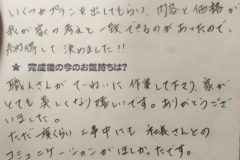 いくつかプランを出してもらい、内容と価格が
私が家の考えと一致できるのがあったので、
納得して決めました!!
★ 完成後の今のお気持ちは?
職人さんがていねいに作業して下さり、家が
とても美しくなり嬉しいです。ありがとうござい
ました。
ただ一度くらい工事中にも社長さんとの
コミュニケーションがほしかったです。